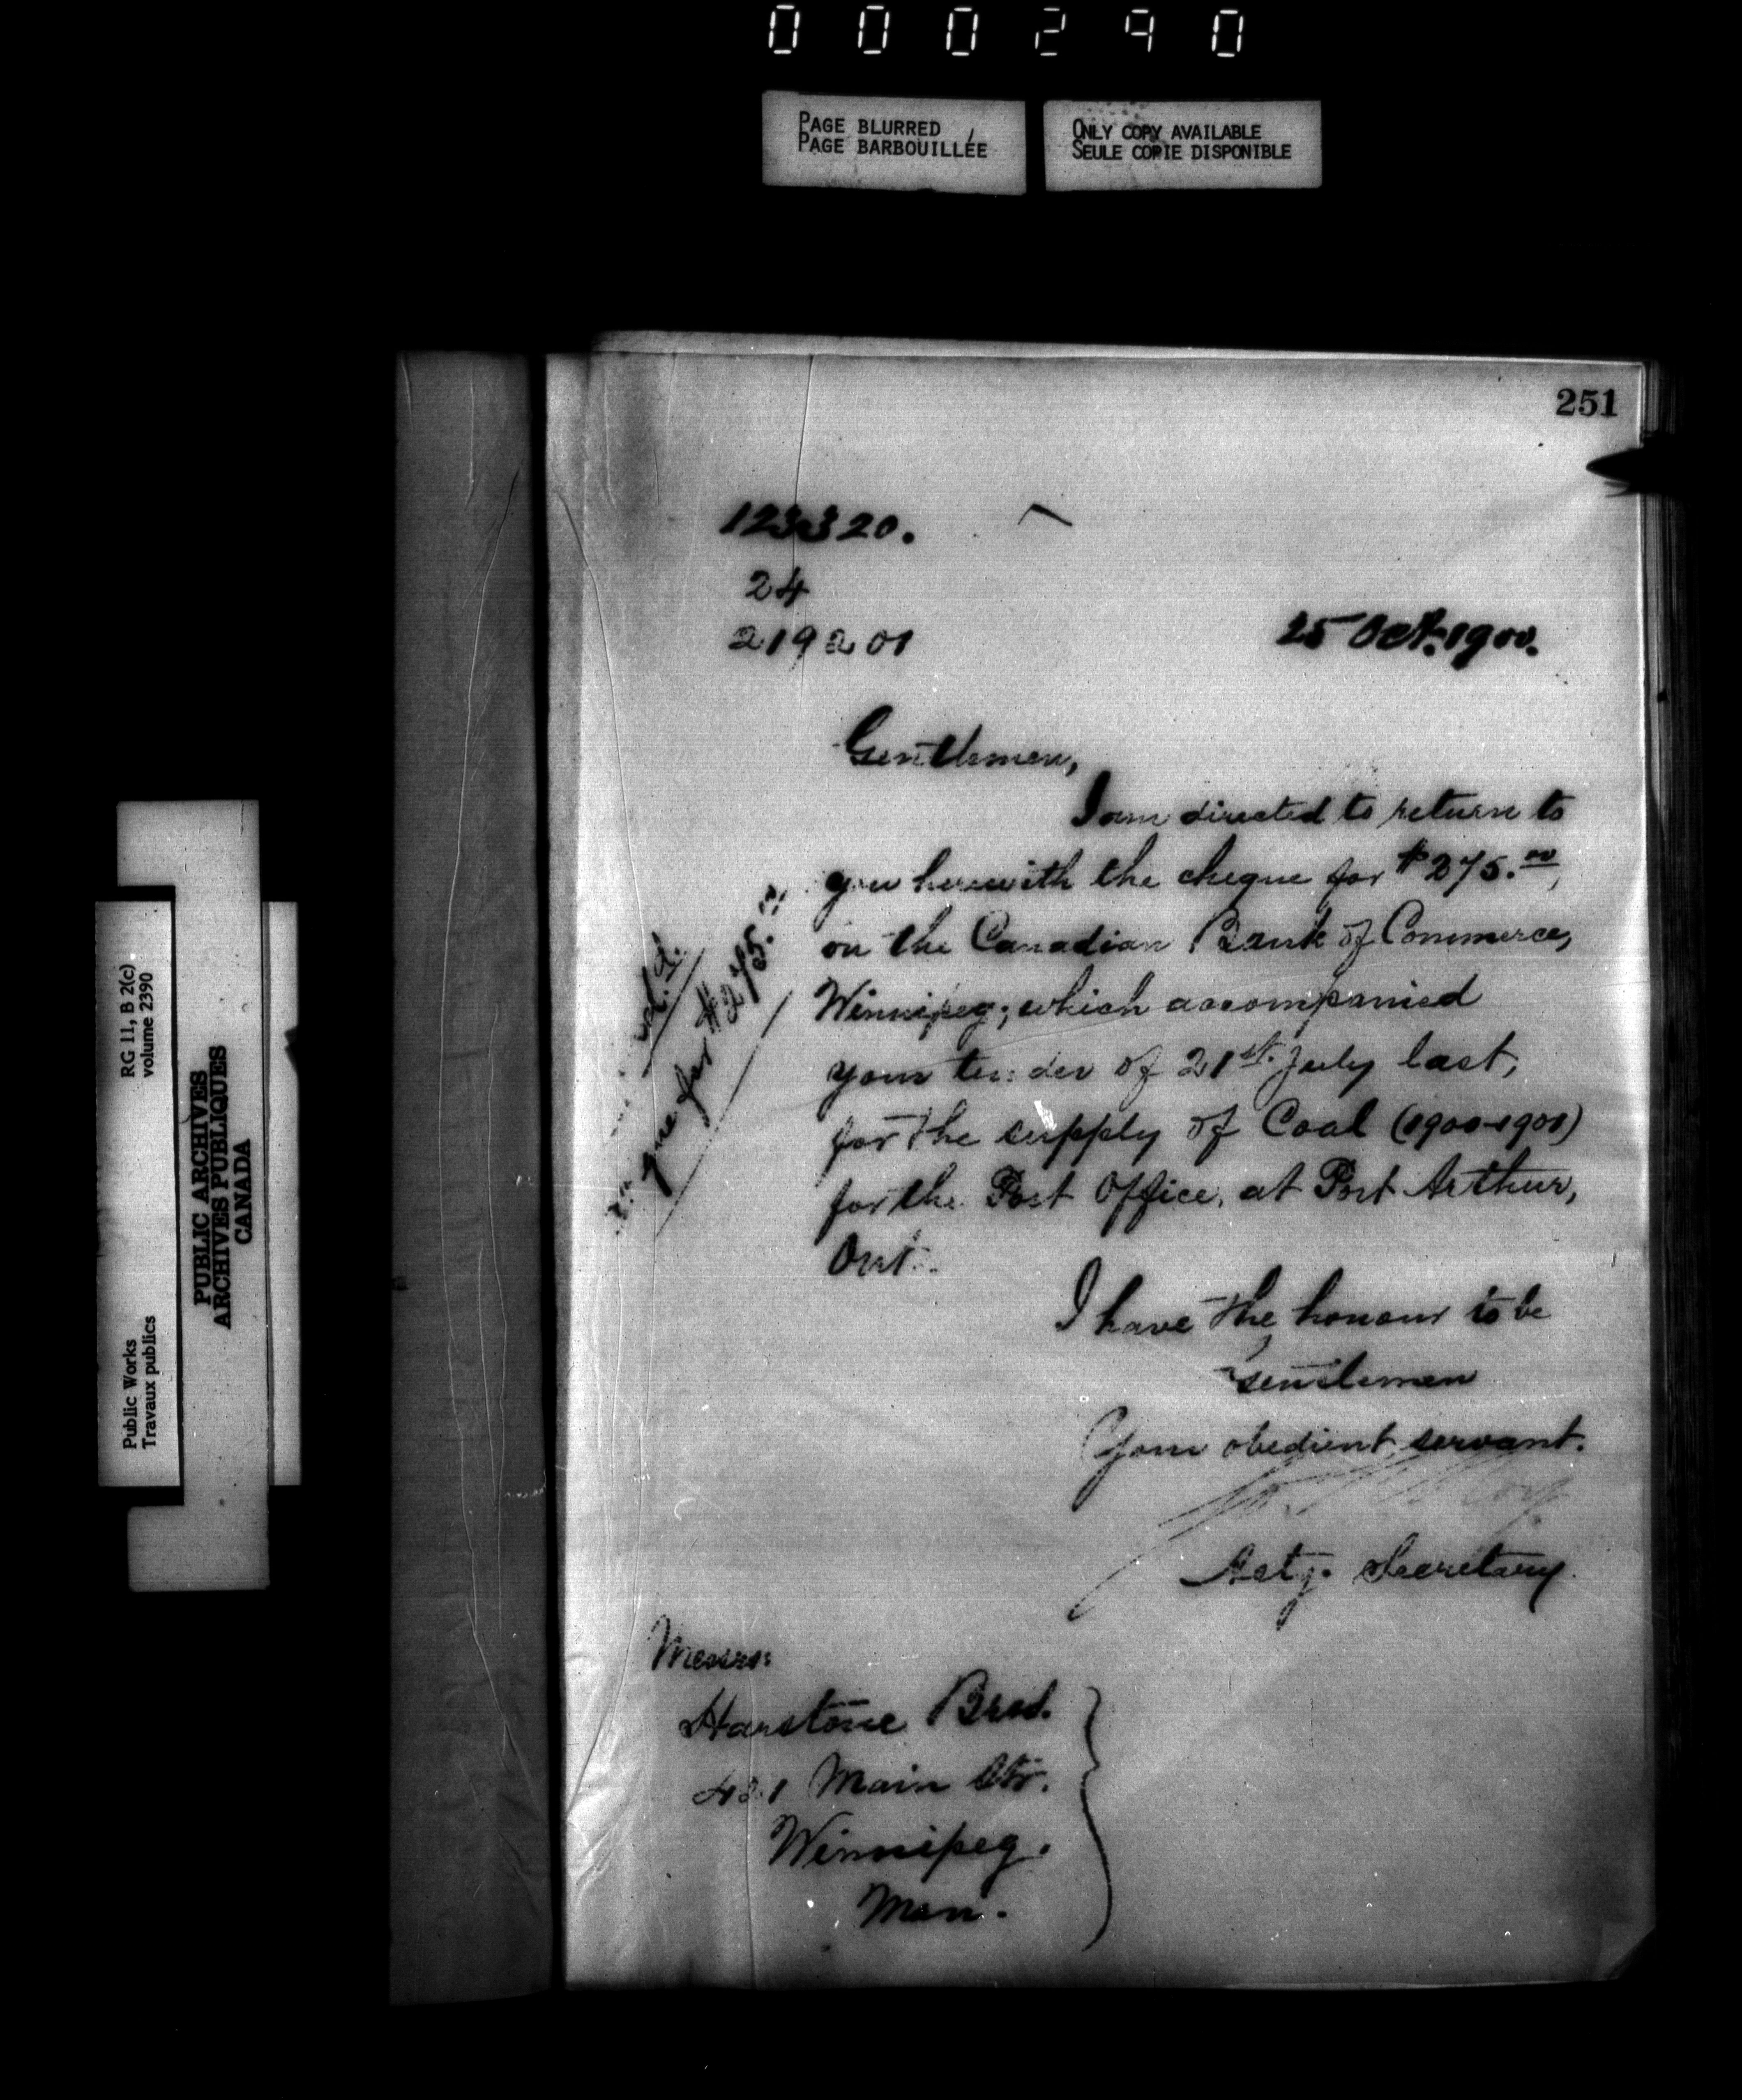 000290
PAGE BLURRED
PAGE BARBOUILLÉE
ONLY COPY AVAILABLE
SEULE COPIE DISPONIBLE
251
123320.
24
219201
25 Oct. 1900.
Gentlemen,
I am directed to return to
you herewith the cheque for $275.00,
on the Canadian Bank of Commerce,
Winnipeg; which accompanied
your tender of 21st. July last,
for the supply of Coal (1900-1901)
for the Post Office, at Port Arthur,
Ont.
I have the honour to be
Gentlemen
Your obedient servant.
Actg. Secretary.
Messrs:
Harstone Bros.
Main Str.
Winnipeg.
Man.
for $275.00
RG 11, B 2(c)
volume 2390
Public Works
Travaux publics
PUBLIC ARCHIVES
ARCHIVES PUBLIQUES
CANADA